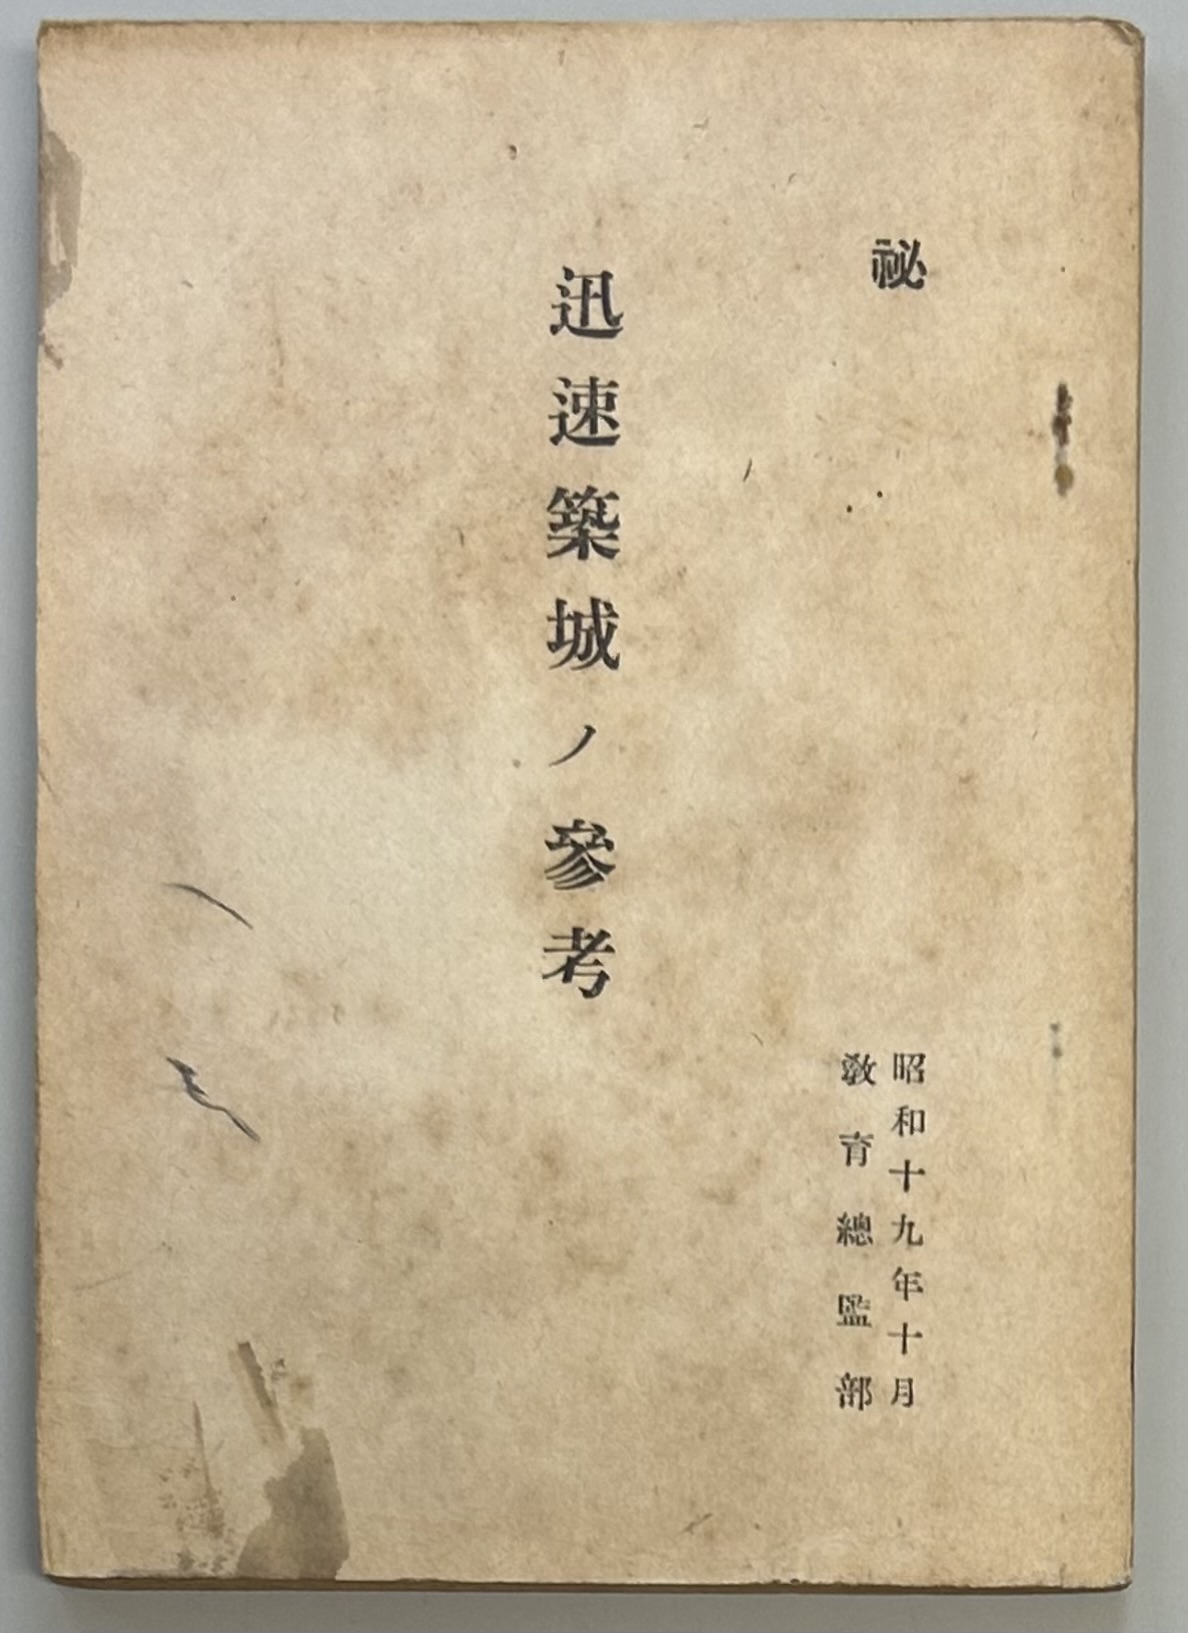 祕
昭和十九年十月
敎育總監部
迅速築城ノ參考